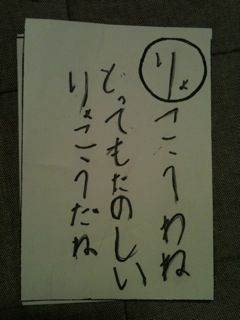 りょこうわね
とってもたのしい
りょこうだね